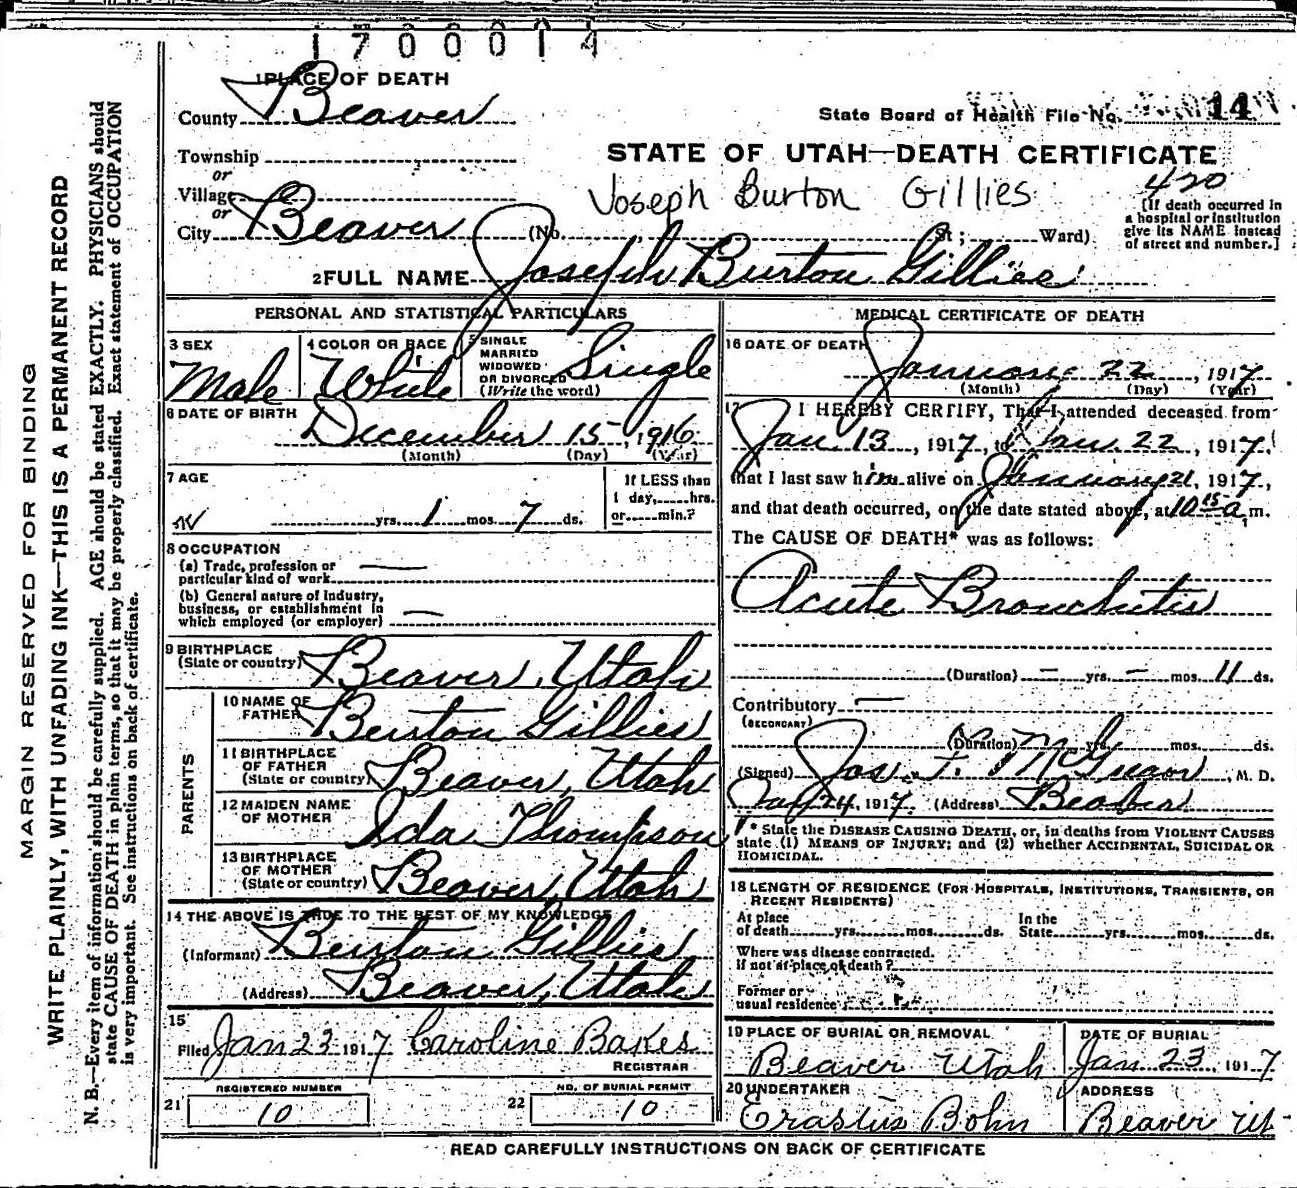 1700014
1 PLACE OF DEATH
County Beaver
State Board of Health File No. 14
Township
or
Village
or
City Beaver (No. St; Ward)
STATE OF UTAH—DEATH CERTIFICATE
Joseph Burton Gillies
420
[If death occurred in
a hospital or institution
give its NAME instead
of street and number.]
2 FULL NAME Joseph Burton Gillies
PERSONAL AND STATISTICAL PARTICULARS
3 SEX
Male
4 COLOR OR RACE
White
5 SINGLE
MARRIED
WIDOWED
OR DIVORCED
(Write the word)
Single
6 DATE OF BIRTH
December 15, 1916
(Month) (Day) (Year)
7 AGE
yrs. 1 mos. 7 ds.
If LESS than
1 day, hrs.
or min.?
8 OCCUPATION
(a) Trade, profession or
particular kind of work
(b) General nature of industry,
business, or establishment in
which employed (or employer)
9 BIRTHPLACE
(State or country) Beaver, Utah
PARENTS
10 NAME OF
FATHER Burton Gillies
11 BIRTHPLACE
OF FATHER
(State or country) Beaver, Utah
12 MAIDEN NAME
OF MOTHER Ida Thompson
13 BIRTHPLACE
OF MOTHER
(State or country) Beaver, Utah
14 THE ABOVE IS TRUE TO THE BEST OF MY KNOWLEDGE
(Informant) Burton Gillies
(Address) Beaver, Utah
15
Filed Jan 23 1917 Caroline Bakes
REGISTRAR
REGISTERED NUMBER
21 10
NO. OF BURIAL PERMIT
22 10
MEDICAL CERTIFICATE OF DEATH
16 DATE OF DEATH
January 22, 1917
(Month) (Day) (Year)
17 I HEREBY CERTIFY, That I attended deceased from
Jan 13, 1917, to Jan. 22, 1917,
that I last saw him alive on January 21, 1917,
and that death occurred, on the date stated above, at 10 15 a m.
The CAUSE OF DEATH* was as follows:
Acute Bronchitis
(Duration) — yrs. — mos. 11 ds.
Contributory —
(SECONDARY)
(Duration) yrs. mos. ds.
(Signed) Jos. F. McGregor, M. D.
Jan 24, 1917. (Address) Beaver
* State the DISEASE CAUSING DEATH, or, in deaths from VIOLENT CAUSES
state (1) MEANS OF INJURY; and (2) whether ACCIDENTAL, SUICIDAL OR
HOMICIDAL.
18 LENGTH OF RESIDENCE (FOR HOSPITALS, INSTITUTIONS, TRANSIENTS, OR
RECENT RESIDENTS)
At place In the
of death yrs. mos. ds. State yrs. mos. ds.
Where was disease contracted.
if not at place of death?
Former or
usual residence
19 PLACE OF BURIAL OR REMOVAL
Beaver Utah
DATE OF BURIAL
Jan 23, 1917
20 UNDERTAKER
Erastus Bohn
ADDRESS
Beaver Ut
READ CAREFULLY INSTRUCTIONS ON BACK OF CERTIFICATE
MARGIN RESERVED FOR BINDING
WRITE PLAINLY, WITH UNFADING INK—THIS IS A PERMANENT RECORD
N. B.—Every item of information should be carefully supplied. AGE should be stated EXACTLY. PHYSICIANS should
state CAUSE OF DEATH in plain terms, so that it may be properly classified. Exact statement of OCCUPATION
is very important. See instructions on back of certificate.